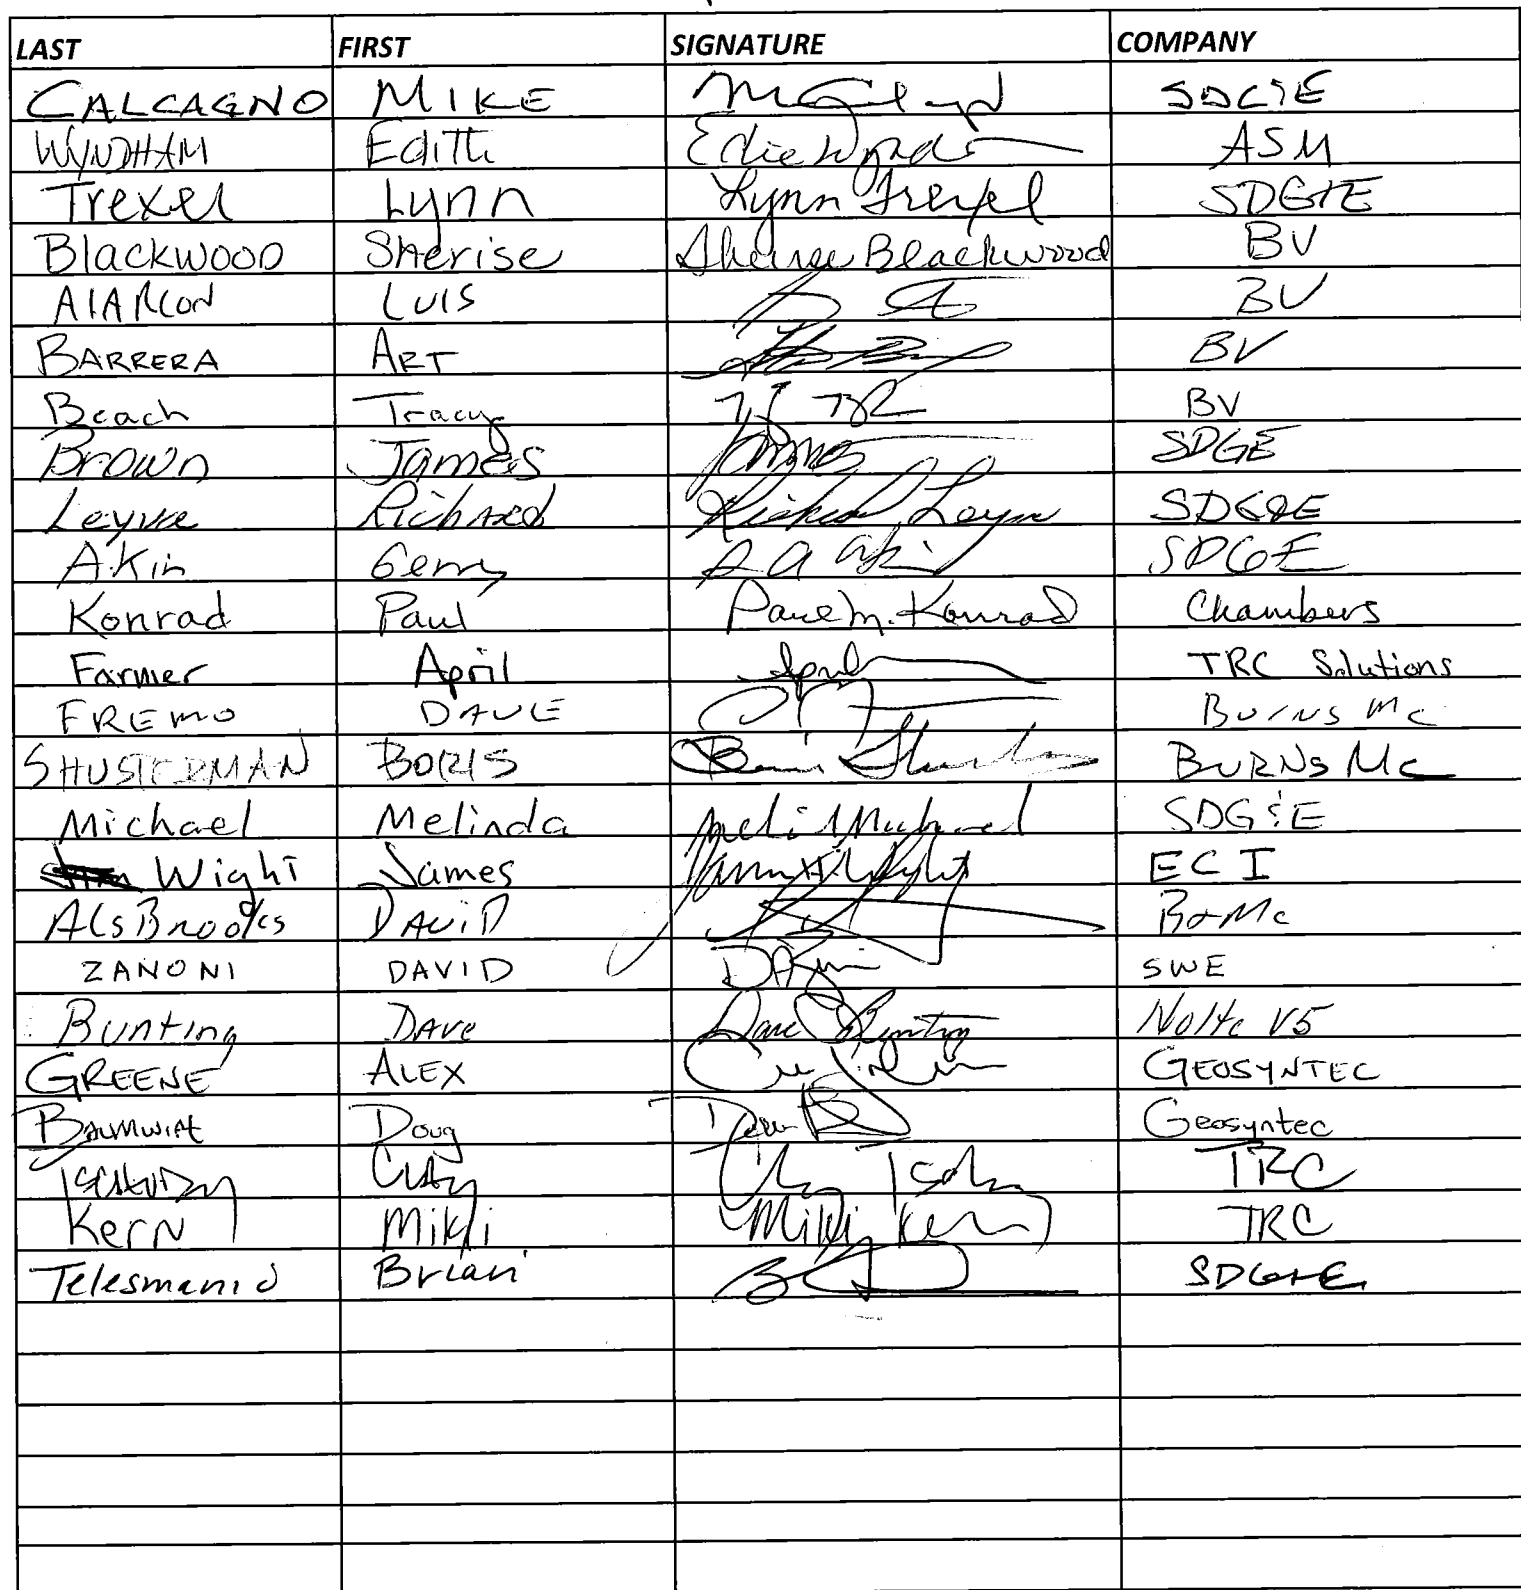 LAST FIRST SIGNATURE COMPANY
CALCAGNO MIKE SDG&E
WYNDHAM Edith Edie Wynd ASM
Trexel Lynn Lynn Trexel SDG&E
Blackwood Sherise Sherise Blackwood BV
AlARCon LUIS BV
BARRERA ART BV
Beach Tracy BV
Brown James James SDGE
Leyva Richard Richard Leyva SDG&E
AKin Gerry SDGE
Konrad Paul Paul M. Konrad Chambers
Farmer April April TRC Solutions
FREMO DAVE Burns Mc
SHUSTERMAN BORIS BURNS Mc
Michael Melinda SDG&E
Wight James James Wight ECI
AlsBrooks DAViD B&Mc
ZANONI DAVID SWE
Bunting DAve Dave Bunting Nolte V5
GREENE ALEX GEOSYNTEC
Doug Geosyntec
TSCHUDY Clay Clay TRC
Kern Mikki Mikki Kern TRC
Brian SDG&E